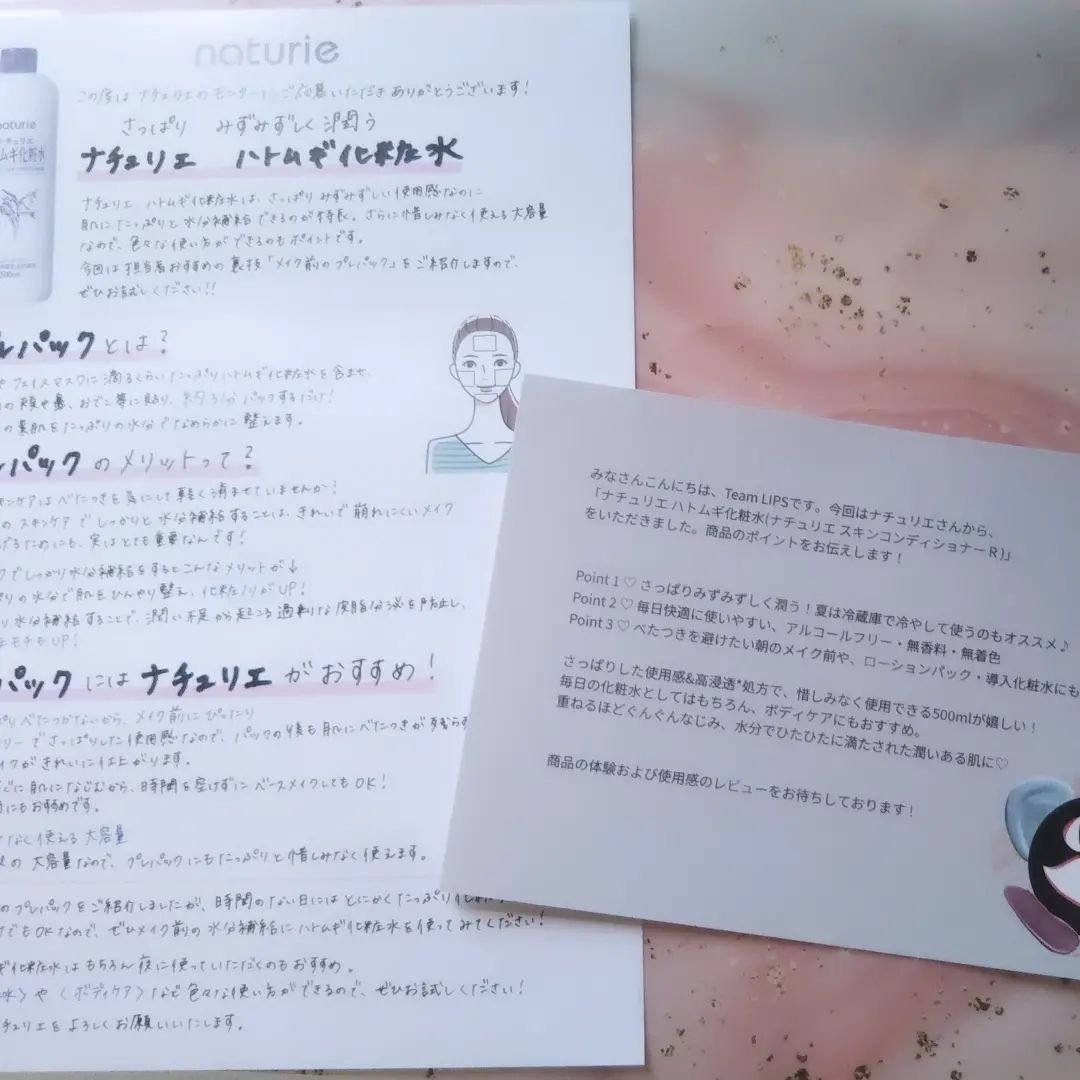 naturie
この度はナチュリエのモニターにご応募いただきありがとうございます!
さっぱり みずみずしく潤う
ナチュリエ ハトムギ化粧水
ナチュリエ ハトムギ化粧水は、さっぱりみずみずしい使用感なのに
肌にたっぷりと水分補給できるのが特長。さらに惜しみなく使える大容量
なので、色々な使い方ができるのもポイントです。
今回は担当者おすすめの裏技「メイク前のプレパック」をご紹介しますので、
ぜひお試しください!!
naturie
ナチュリエ
ムギ化粧水
500ml
レパックとは?
やフェイスマスクに滴るくらいたっぷりハトムギ化粧水を含ませ、
の頬や鼻、おでこ等に貼り、約3分パックするだけ!
の素肌をたっぷりの水分でなめらかに整えます。
パックのメリットって?
キンケアはべたつきを気にして軽く済ませていませんか?
のスキンケアでしっかりと水分補給することは、きれいで崩れにくいメイク
げるためにも、実はとても重要なんです!
クでしっかり水分補給をするとこんなメリットが↓
ぷりの水分で肌をひんやり整え、化粧ノリがUP!
り水分補給することで、潤い不足から起こる過剰な皮脂分泌を防止し、
モチもUP!
パックにはナチュリエがおすすめ!
ぱりべたつかないから、メイク前にぴったり
リーでさっぱりした使用感なので、パックの後も肌にべたつきが残らず
イクがきれいに仕上がります。
ぐに肌になじむから、時間を空けずにベースメイクしてもOK!
にもおすすめです。
なく使える大容量
の大容量なので、プレパックにもたっぷりと惜しみなく使えます。
のプレパックをご紹介しましたが、時間のない日にはとにかくたっぷり
でもOKなので、ぜひメイク前の水分補給にハトムギ化粧水を使ってみてください!
ギ化粧水はもちろん夜に使っていただくのもおすすめ。
水〉や〈ボディケア〉など色々な使い方ができるので、ぜひお試しください!
チュリエをよろしくお願いいたします。
みなさんこんにちは、Team LIPSです。今回はナチュリエさんから、
「ナチュリエ ハトムギ化粧水(ナチュリエ スキンコンディショナー R )」
をいただきました。商品のポイントをお伝えします!
Point 1 ♡ さっぱりみずみずしく潤う!夏は冷蔵庫で冷やして使うのもオススメ♪
Point 2 ♡ 毎日快適に使いやすい、アルコールフリー・無香料・無着色
Point 3 ♡ べたつきを避けたい朝のメイク前や、ローションパック・導入化粧水にも
さっぱりした使用感&高浸透*処方で、惜しみなく使用できる500mlが嬉しい!
毎日の化粧水としてはもちろん、ボディケアにもおすすめ。
重ねるほどぐんぐんなじみ、水分でひたひたに満たされた潤いある肌に♡
商品の体験および使用感のレビューをお待ちしております!